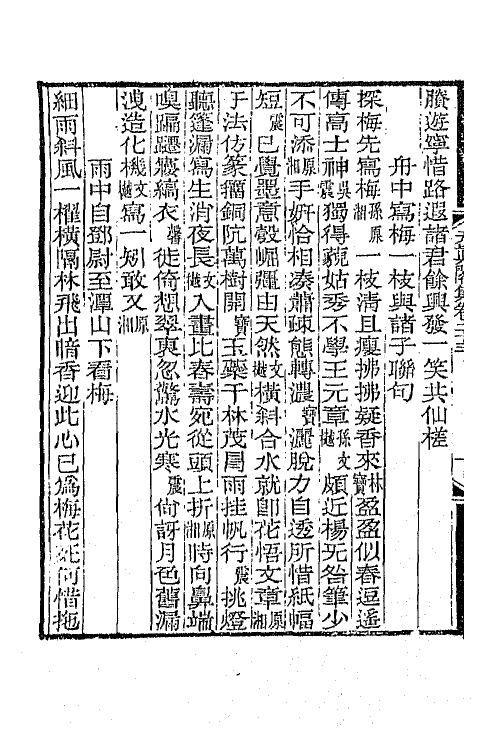 賸遊寧惜路遐諸君餘興發一笑共仙槎
舟中寫梅一枝與諸子聯句
探梅先寫梅孫原湘一枝清且瘦拂拂疑香來林寶盈盈似春逗遙
傳高士神吳震獨得藐姑秀不學王元章孫文樾頗近楊无咎筆少
不可添原湘手姸恰相湊蕭疎態轉濃寶灑脫力自透所惜紙幅
短震已覺墨意彀崛彊由天然文樾橫斜合水就卽花悟文章原湘
于法仿篆籀銅阬萬樹開寶玉蘂千林茂風雨挂帆行震挑燈
聽篷漏寫生消夜長文樾入畫比春壽宛從頭上折原湘時向鼻端
嗅蹁躚縞衣徙倚想翠忽驚水光寒震尙訝月色舊漏
洩造化機文樾寫一矧敢又原湘
雨中自鄧尉至潭山下看梅
細雨斜風一櫂橫隔林飛出暗香迎此心已爲梅花死何惜拖